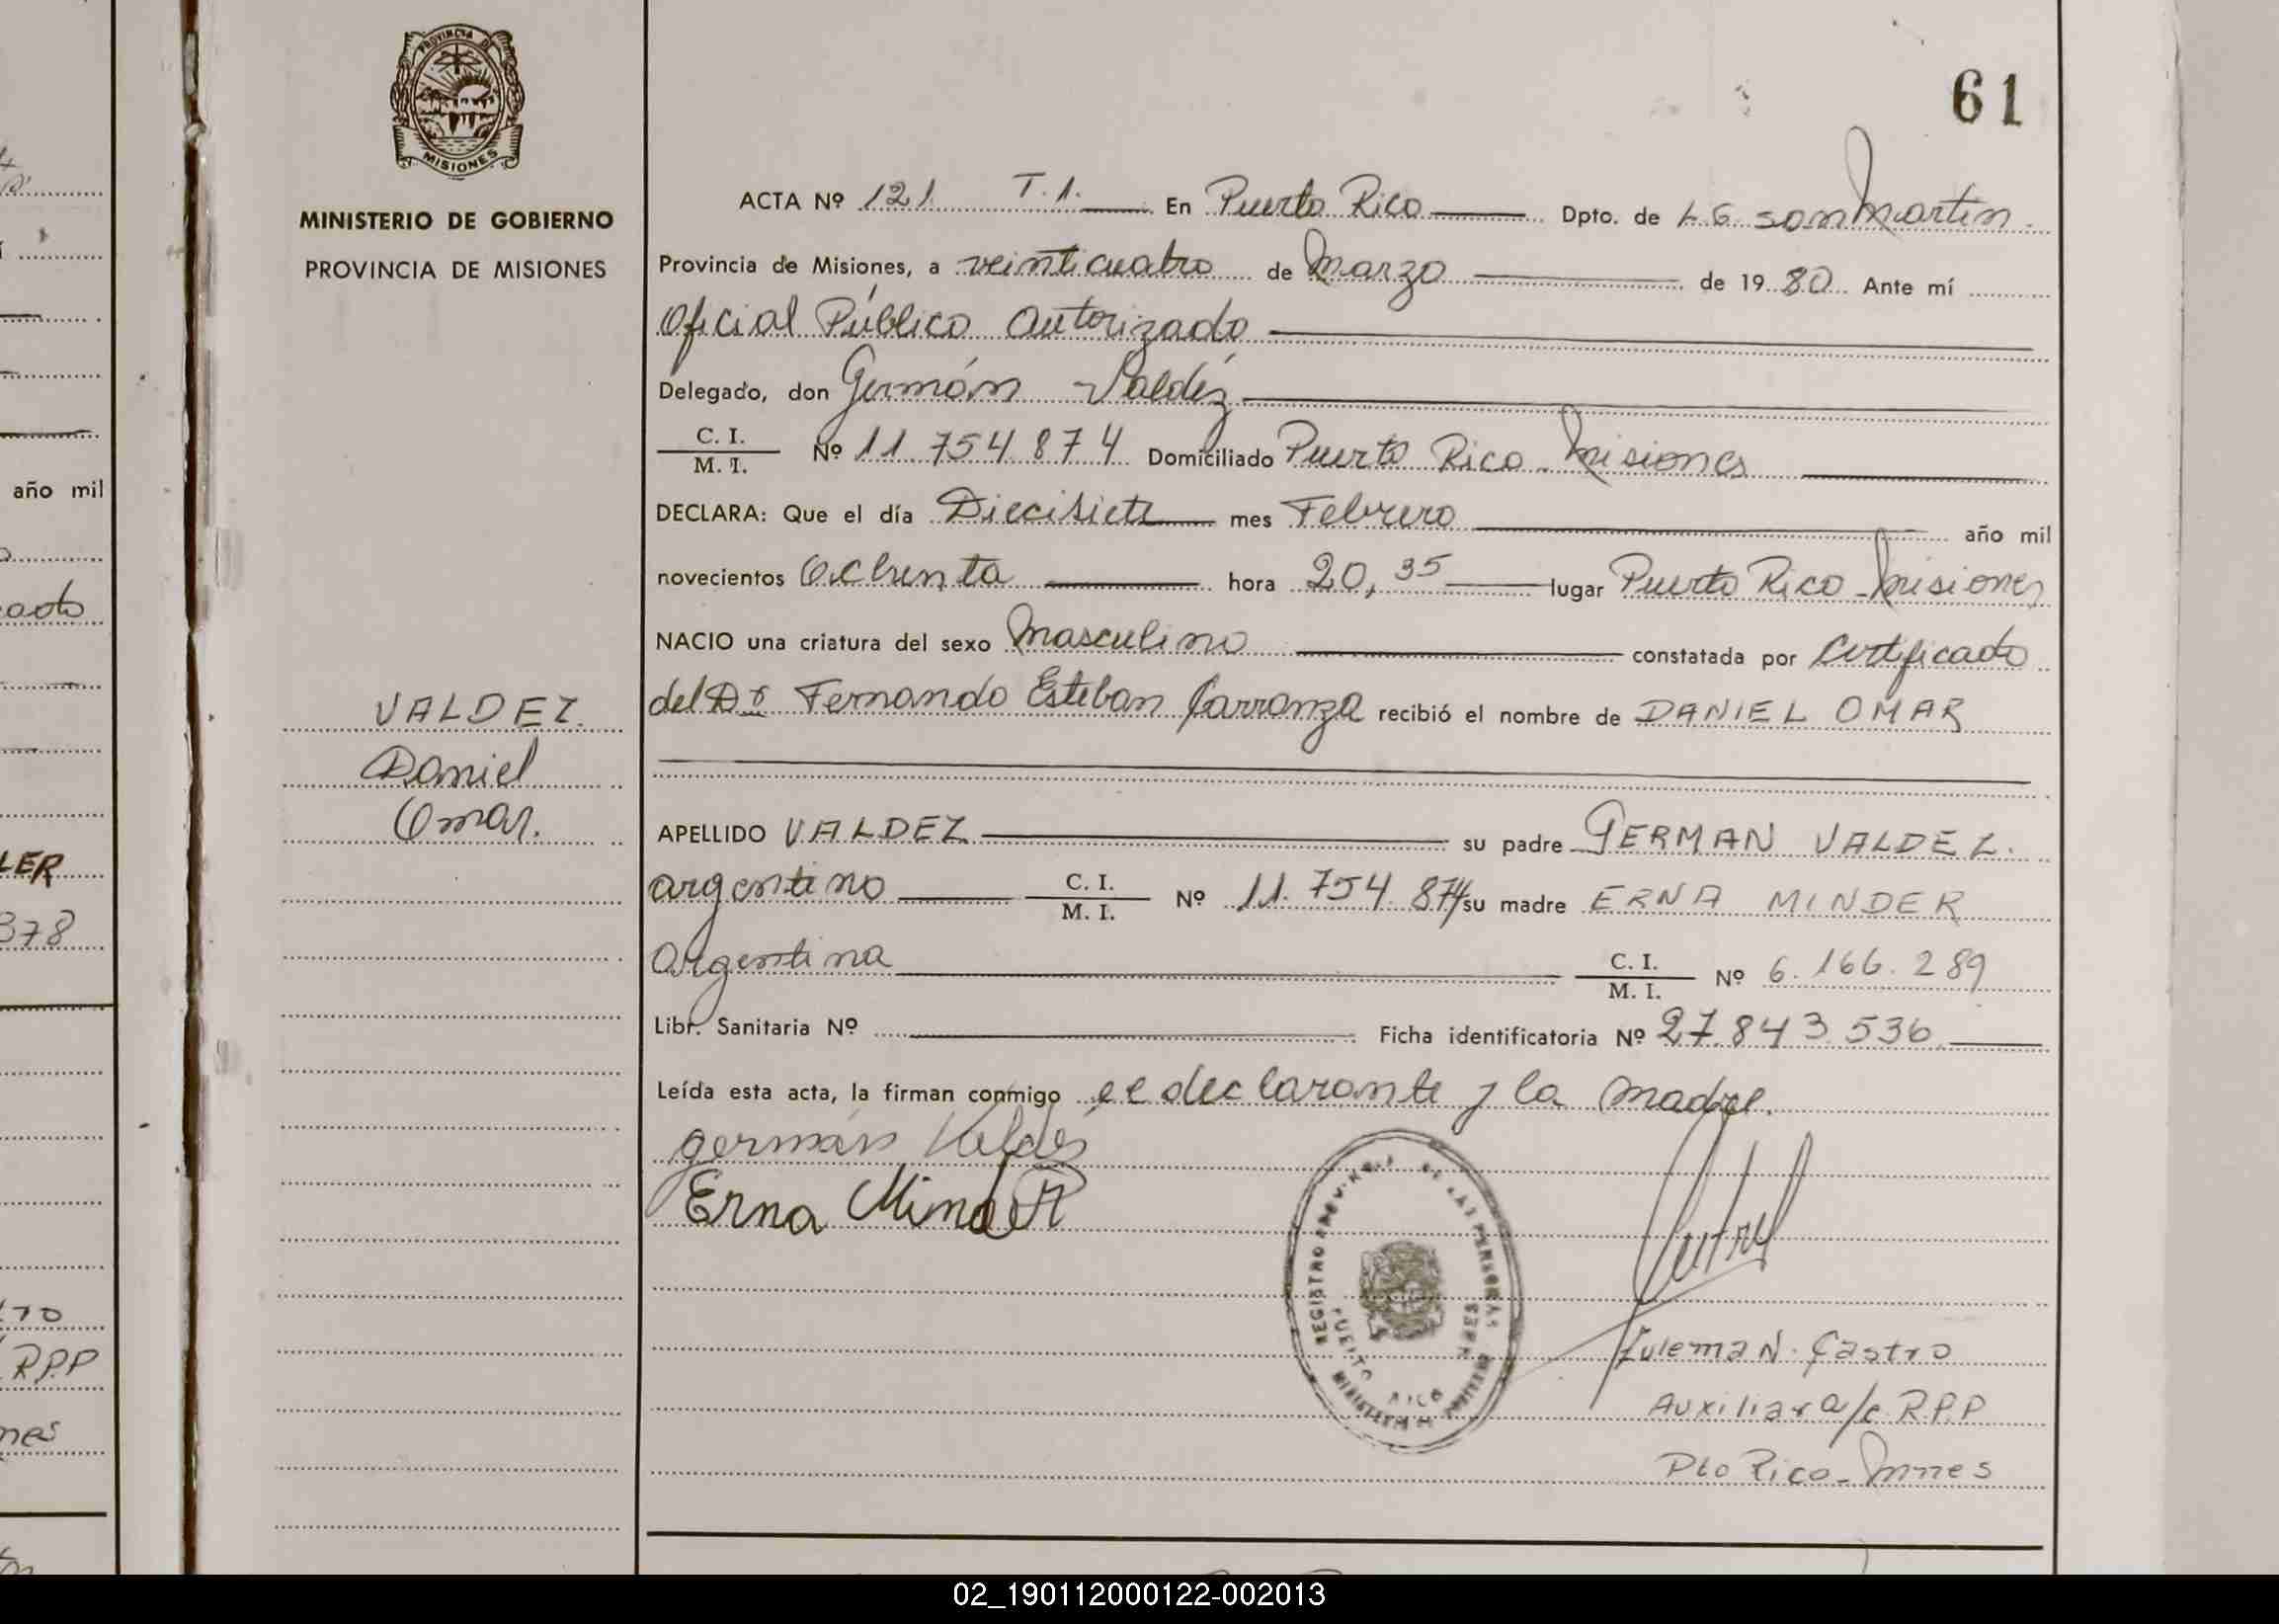 PROVINCIA DE
MISIONES
MINISTERIO DE GOBIERNO
PROVINCIA DE MISIONES
VALDEZ.
Daniel
Omar.
61
ACTA Nº 121 T. 1. En Puerto Rico Dpto. de L. G. san Martín.
Provincia de Misiones, a veinticuatro de Marzo de 1980 Ante mí
Oficial Público Autorizado
Delegado, don Germán Valdéz
C. I.
M. I. Nº 11.754.874 Domiciliado Puerto Rico - Misiones
DECLARA: Que el día Diecisiete mes Febrero año mil
novecientos Ochenta hora 20,35 lugar Puerto Rico - Misiones
NACIO una criatura del sexo Masculino constatada por Certificado
del Dr Fernando Esteban Carranza recibió el nombre de DANIEL OMAR
APELLIDO VALDEZ su padre GERMAN VALDEZ.
argentino C. I.
M. I. Nº 11.754.874 su madre ERNA MINDER
Argentina C. I.
M. I. Nº 6.166.289
Libr. Sanitaria Nº Ficha identificatoria Nº 27.843.536
Leída esta acta, la firman conmigo el declarante y la madre.
germán Valdés
Erna Minder
REGISTRO DE LAS PERSONAS
PUERTO RICO
Zulema N. Castro
Auxiliar a/c. R.P.P
Pto Rico - Mnes
año mil
LER
378
RPP
nes
02_190112000122-002013